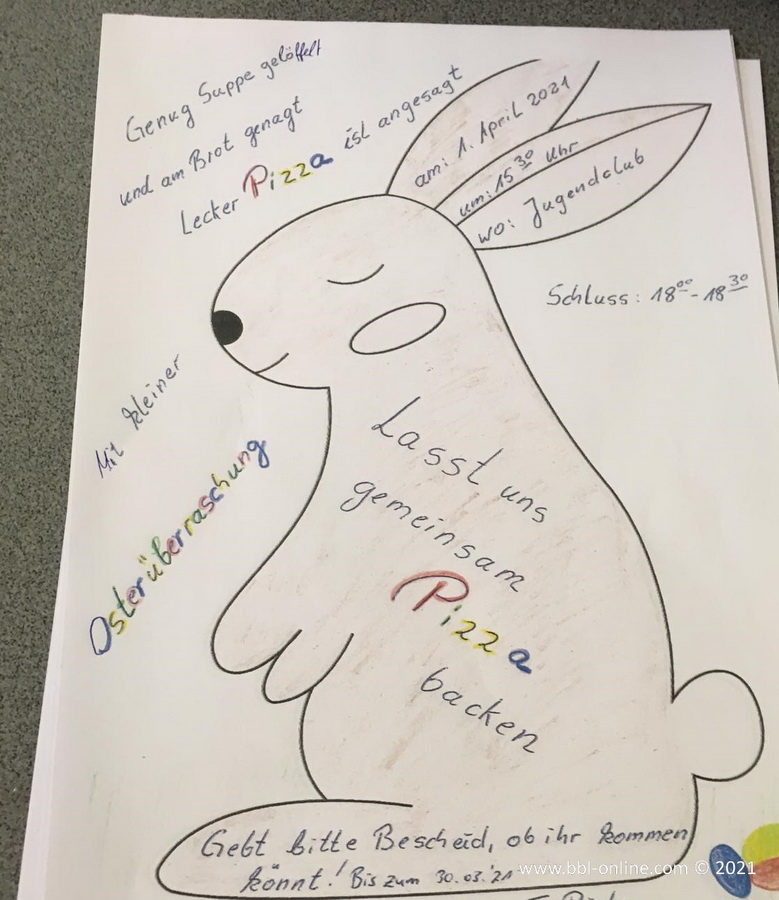 Genug Suppe gelöffelt
und am Brot genagt
Lecker Pizza ist angesagt
am: 1. April 2021
um: 15 30 Uhr
wo: Jugendclub
Schluss: 18 00 - 18 30
Mit kleiner
Osterüberraschung
Lasst uns
gemeinsam
Pizza
backen
Gebt bitte Bescheid, ob ihr kommen
könnt! Bis zum 30.03.'21
www.bbl-online.com © 2021